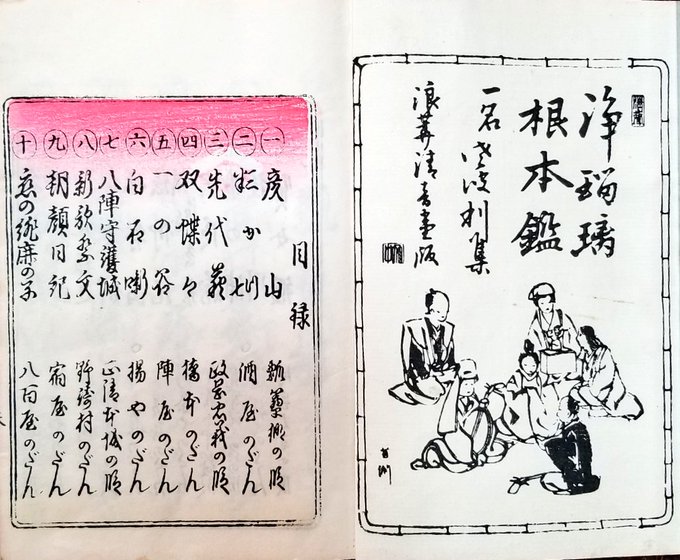 浄瑠璃
根本鑑
一名 利集
浪華清音堂版
目録
一 彦山 瓢箪棚の段
二 酒屋のだん
三 先代萩 政岡忠義の段
四 双蝶々 橋本のだん
五 一の谷 陣屋のだん
六 白石噺 揚やのだん
七 八陣守護城 正清本城の段
八 新歌祭文 野崎村のだん
九 朝顔日記 宿屋のだん
十 恋の緋鹿の子 八百屋のだん